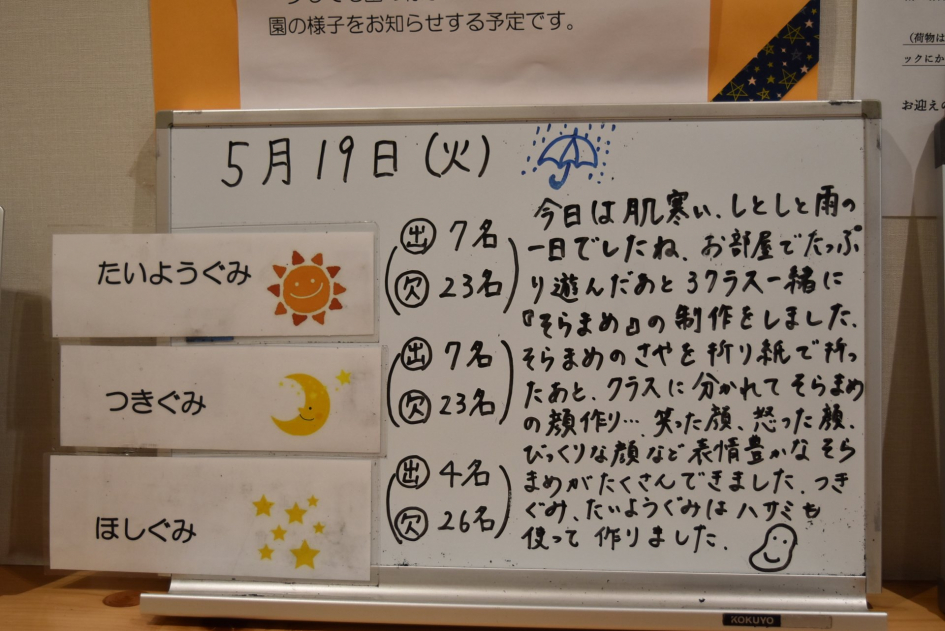 園の様子をお知らせする予定です。
(荷物は
ックにか
お迎えの
5月19日(火)
たいようぐみ
出 7名
欠 23名
つきぐみ
出 7名
欠 23名
ほしぐみ
出 4名
欠 26名
今日は肌寒い、しとしと雨の
一日でしたね、お部屋でたっぷ
り遊んだあと3クラス一緒に
『そらまめ』の制作をしました、
そらまめのさやを折り紙で折っ
たあと、クラスに分かれてそらまめ
の顔作り…笑った顔、怒った顔、
びっくりな顔など表情豊かなそら
まめがたくさんできました、つき
ぐみ、たいようぐみはハサミも
使って作りました、
KOKUYO